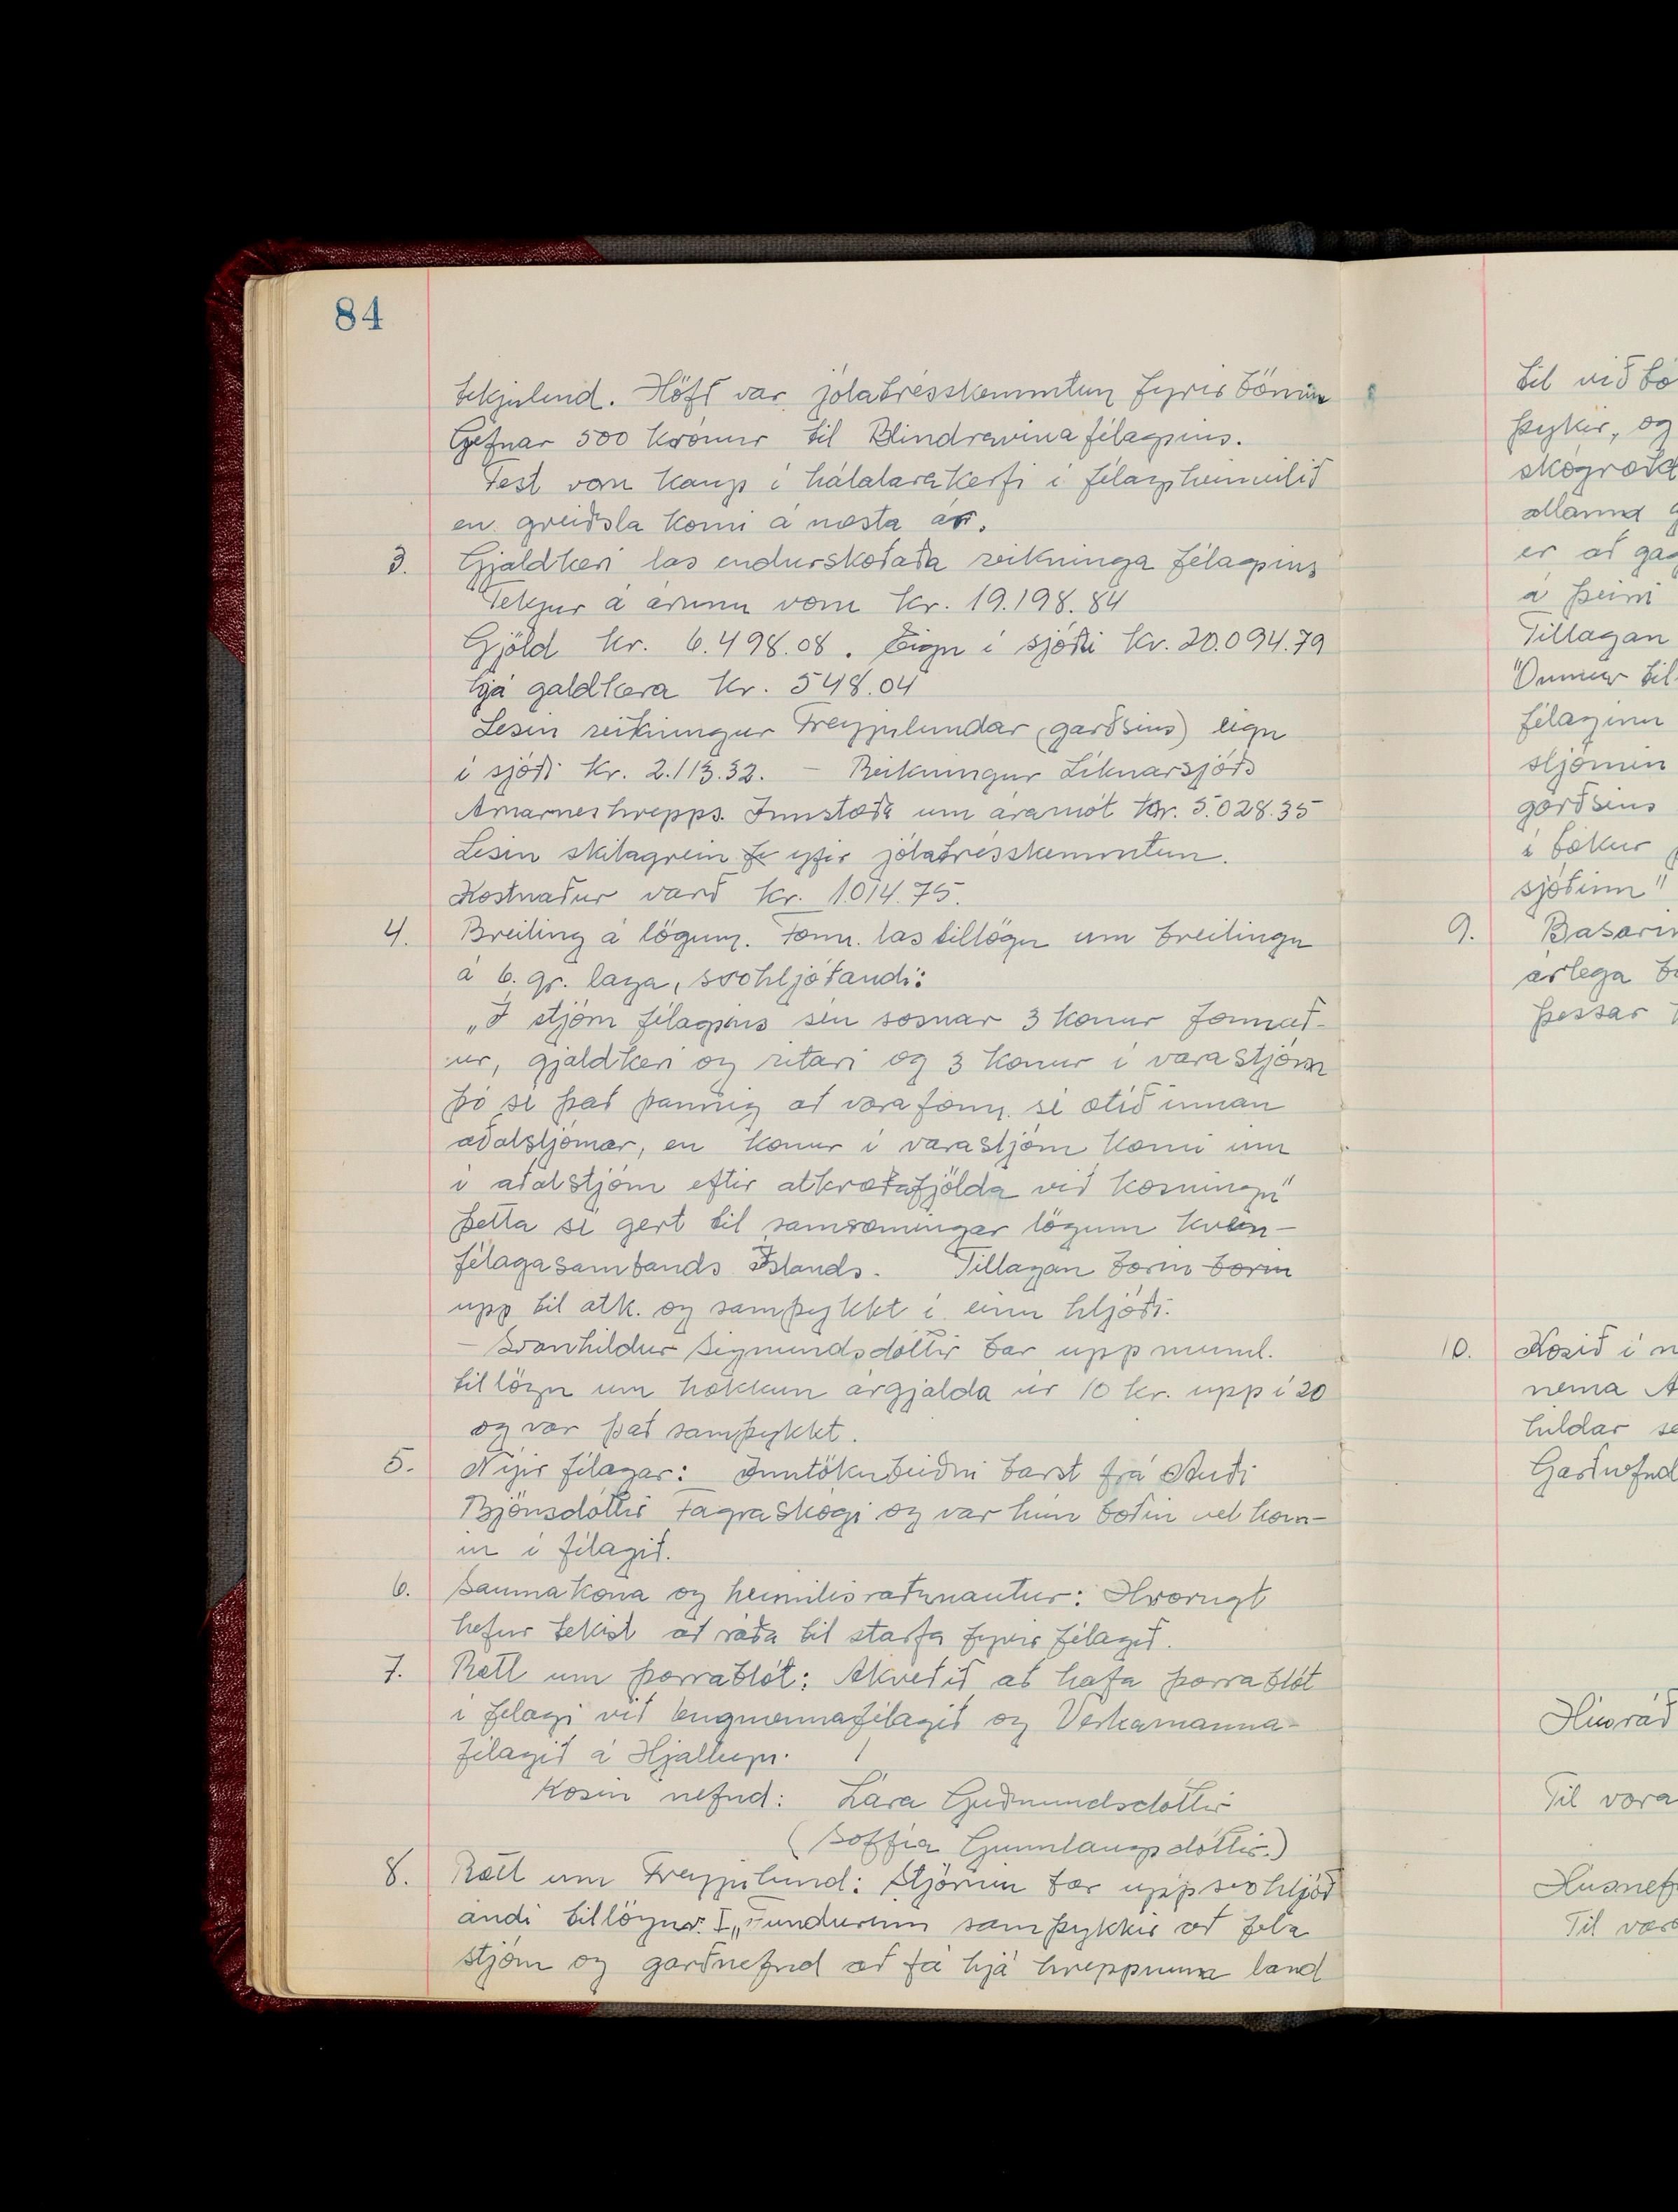 84
tekjulind. Höfð var jólatrésskemmtun fyrir börnin
Gefnar 500 krónur til Blindravinafélagsins.
Fest vom kaup í hátalarakerfi í félagsheimilið
en greiðsla komi á næsta ár.
3. Gjaldkeri las endurskoðaða reikninga félagsins
Tekjur á árinu vom kr. 19.198.84
Gjöld kr. 6.498.08. Eign í sjóði kr. 20.094.79
hjá galdkera kr. 548.04
Lesin reikningur Freyjulundar (garðsins) eign
í sjóði kr. 2.113.32. - Reikningur Líknarsjóðs
Arnarneshrepps. Innstæða um áramót kr. 5.028.35
Lesin skilagrein yfir jólatrésskemmtun.
Kostnaður varð kr. 1.014.75.
4. Breiting á lögum. Form. las tillögu um breitingu
á 6. gr. laga, svohljóðandi:
„Í stjórn félagsins séu sosnar 3 konur formað-
ur, gjaldkeri og ritari og 3 konur í varastjórn
þó sé það þannig að vara form. sé ætið innan
aðalstjórnar, en konur í varastjórn komi inn
í aðalstjórn eftir atkvæðafjölda við kosningu"
Þetta sé gert til samræmingar lögum kven-
félagasambands Íslands. Tillagan borin borin
upp til atk. og samþykkt í einu hljóði.
- Svanhildur Sigmundsdóttir bar upp munnl.
tillögu um hækkun árgjalda úr 10 kr. upp í 20
og var það samþykkt.
5. Nýjir félagar: Inntökubeiðni barst frá Auði
Björnsdóttir Fagraskógi og var hún boðin vel kom-
in í félagið.
6. Saumakona og heimilisráðunautur: Hvorugt
hefur tekist að ráða til starfa fyrir félagið.
7. Rætt um þorrablót: Akveðið að hafa þorrablót
í félagi við Ungmennafélagið og Verkamanna-
félagið á Hjalteyri.
Kosin nefnd: Lára Guðmundsdóttir
(Soffía Gunnlaugsdóttir)
8. Rætt um Freyjulund: Stjórnin bar upp svohljóð
andi tillögur. I „Fundurinn samþykkir að fela
stjórn og garðnefnd að fá hjá hreppnum land
til við bó
þykir, og
skógrækt
allann
er að gag
á þeim
Tillagan
Önnur til
félaginu
stjórnin
garðsins
í bökur
sjóðinn"
9. Basarin
árlega
þessar
10. Kosið í n
nema A
huldar se
Garðnefnd
Húsráð
Til vara
Húsnef
Til vara